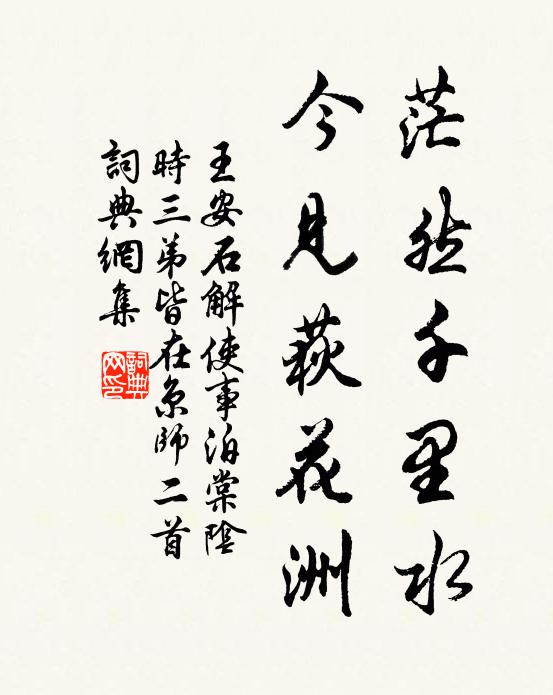 茫然千里水
今見荻花洲
王安石解使事泊棠陰
時三弟皆在京師二首
詞典網集
詞典網印